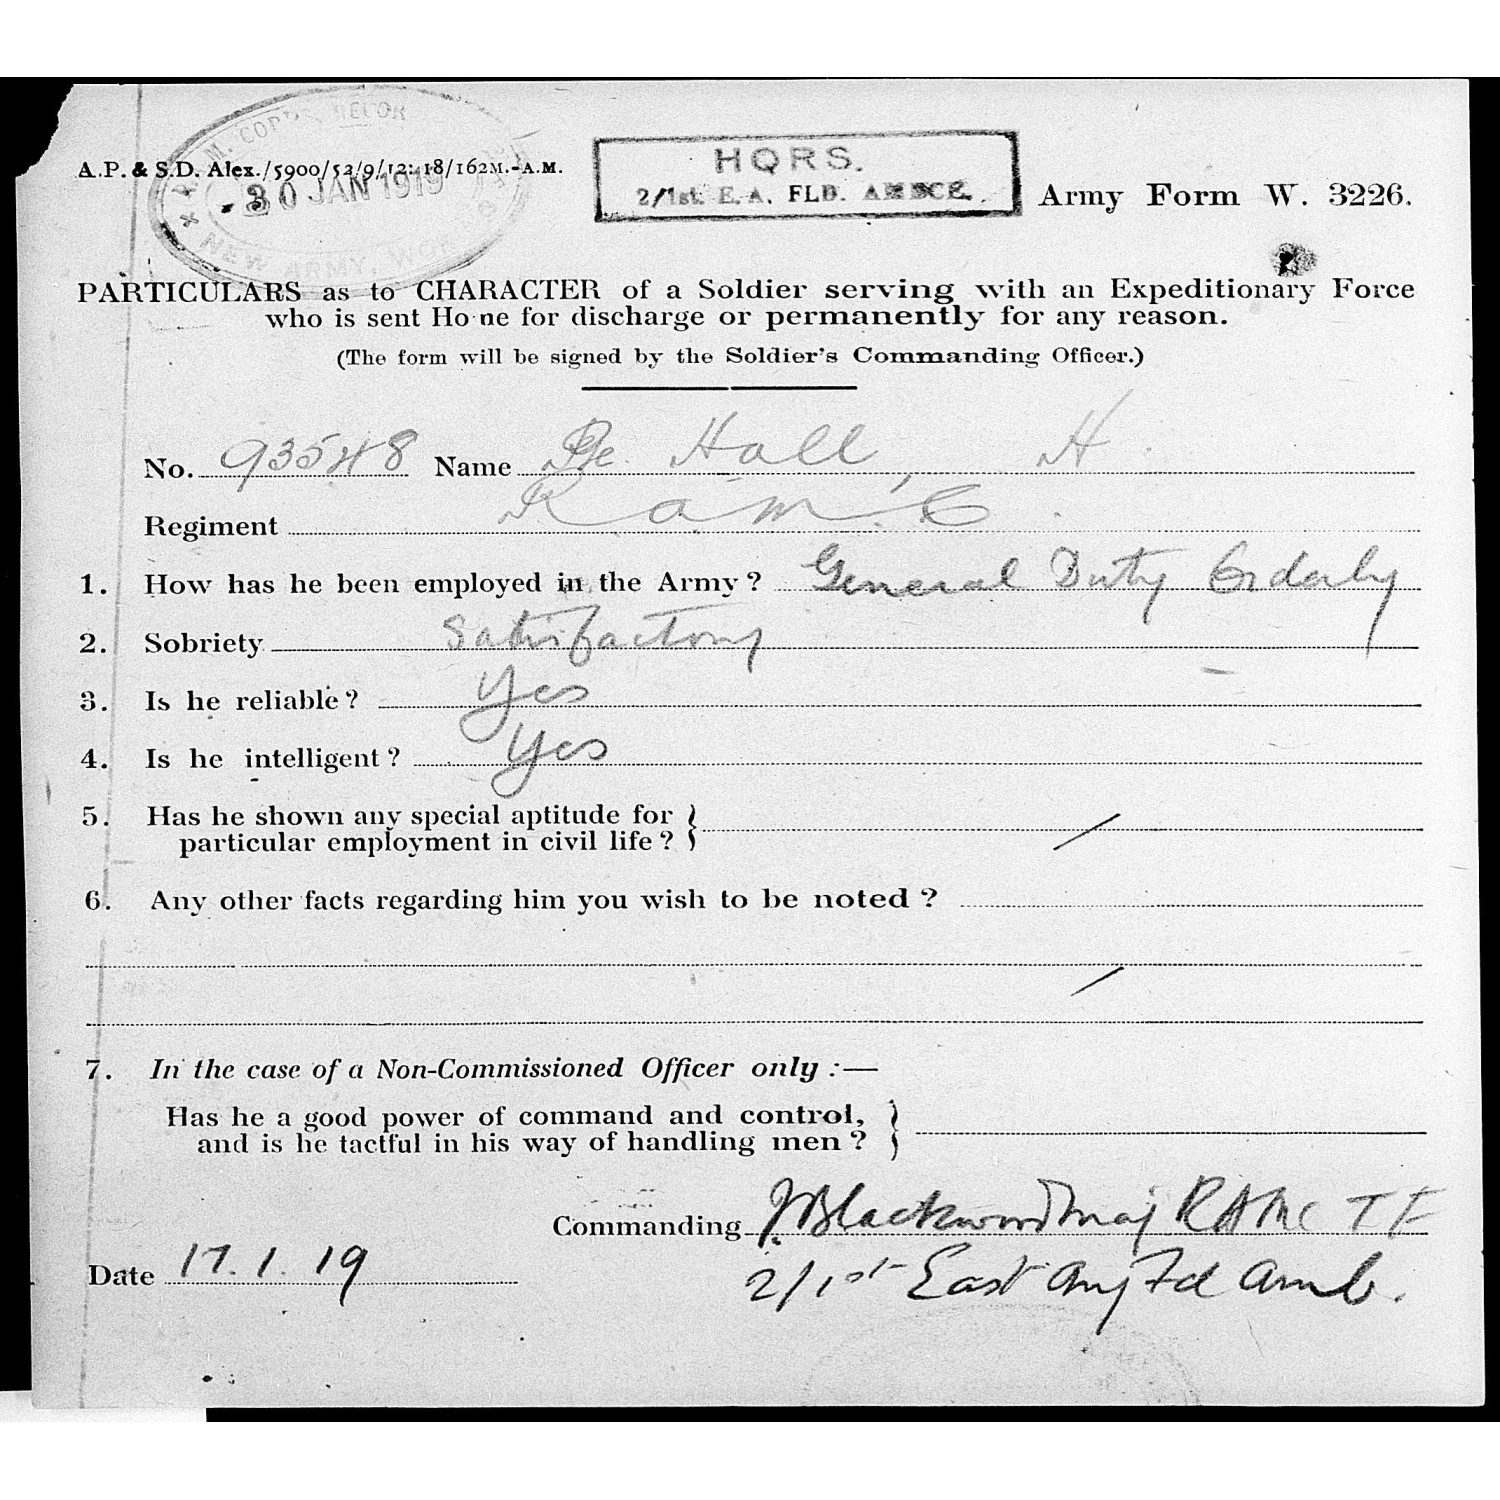 R.A.M. CORPS RECOR
A.P. & S.D. Alex./5900/52/9/12:18/162M.-A.M.
30 JAN 1919
NEW ARMY, WO
HQRS.
2/1st. E. A. FLD. AMBCE.
Army Form W. 3226.
PARTICULARS as to CHARACTER of a Soldier serving with an Expeditionary Force
who is sent Home for discharge or permanently for any reason.
(The form will be signed by the Soldier's Commanding Officer.)
No. 93548 Name Pte. Hall, H.
Regiment R.A.M.C.
1. How has he been employed in the Army? General Duty Orderly
2. Sobriety Satisfactory
3. Is he reliable? Yes
4. Is he intelligent? Yes
5. Has he shown any special aptitude for
particular employment in civil life? /
6. Any other facts regarding him you wish to be noted?
/
7. In the case of a Non-Commissioned Officer only :—
Has he a good power of command and control,
and is he tactful in his way of handling men?
Commanding J. Blackwood Maj RAMC TF
Date 17.1.19 2/1st East Ang Fd Amb.